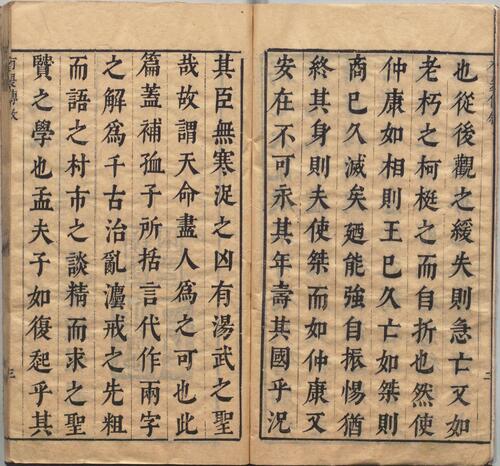 也從後觀之緩失則急亡又如
老朽之柯梃之而自折也然使
仲康如相則王已久亡如桀則
商已久滅矣廼能強自振惕猶
終其身則夫使桀而如仲康又
安在不可永其年壽其國乎況
二
其臣無寒浞之凶有湯武之聖
哉故謂天命盡人為之可也此
篇蓋補孤子所括言代作兩字
之解為千古治亂灋戒之先粗
而語之村市之談精而求之聖
賢之學也孟夫子如復起乎其
三